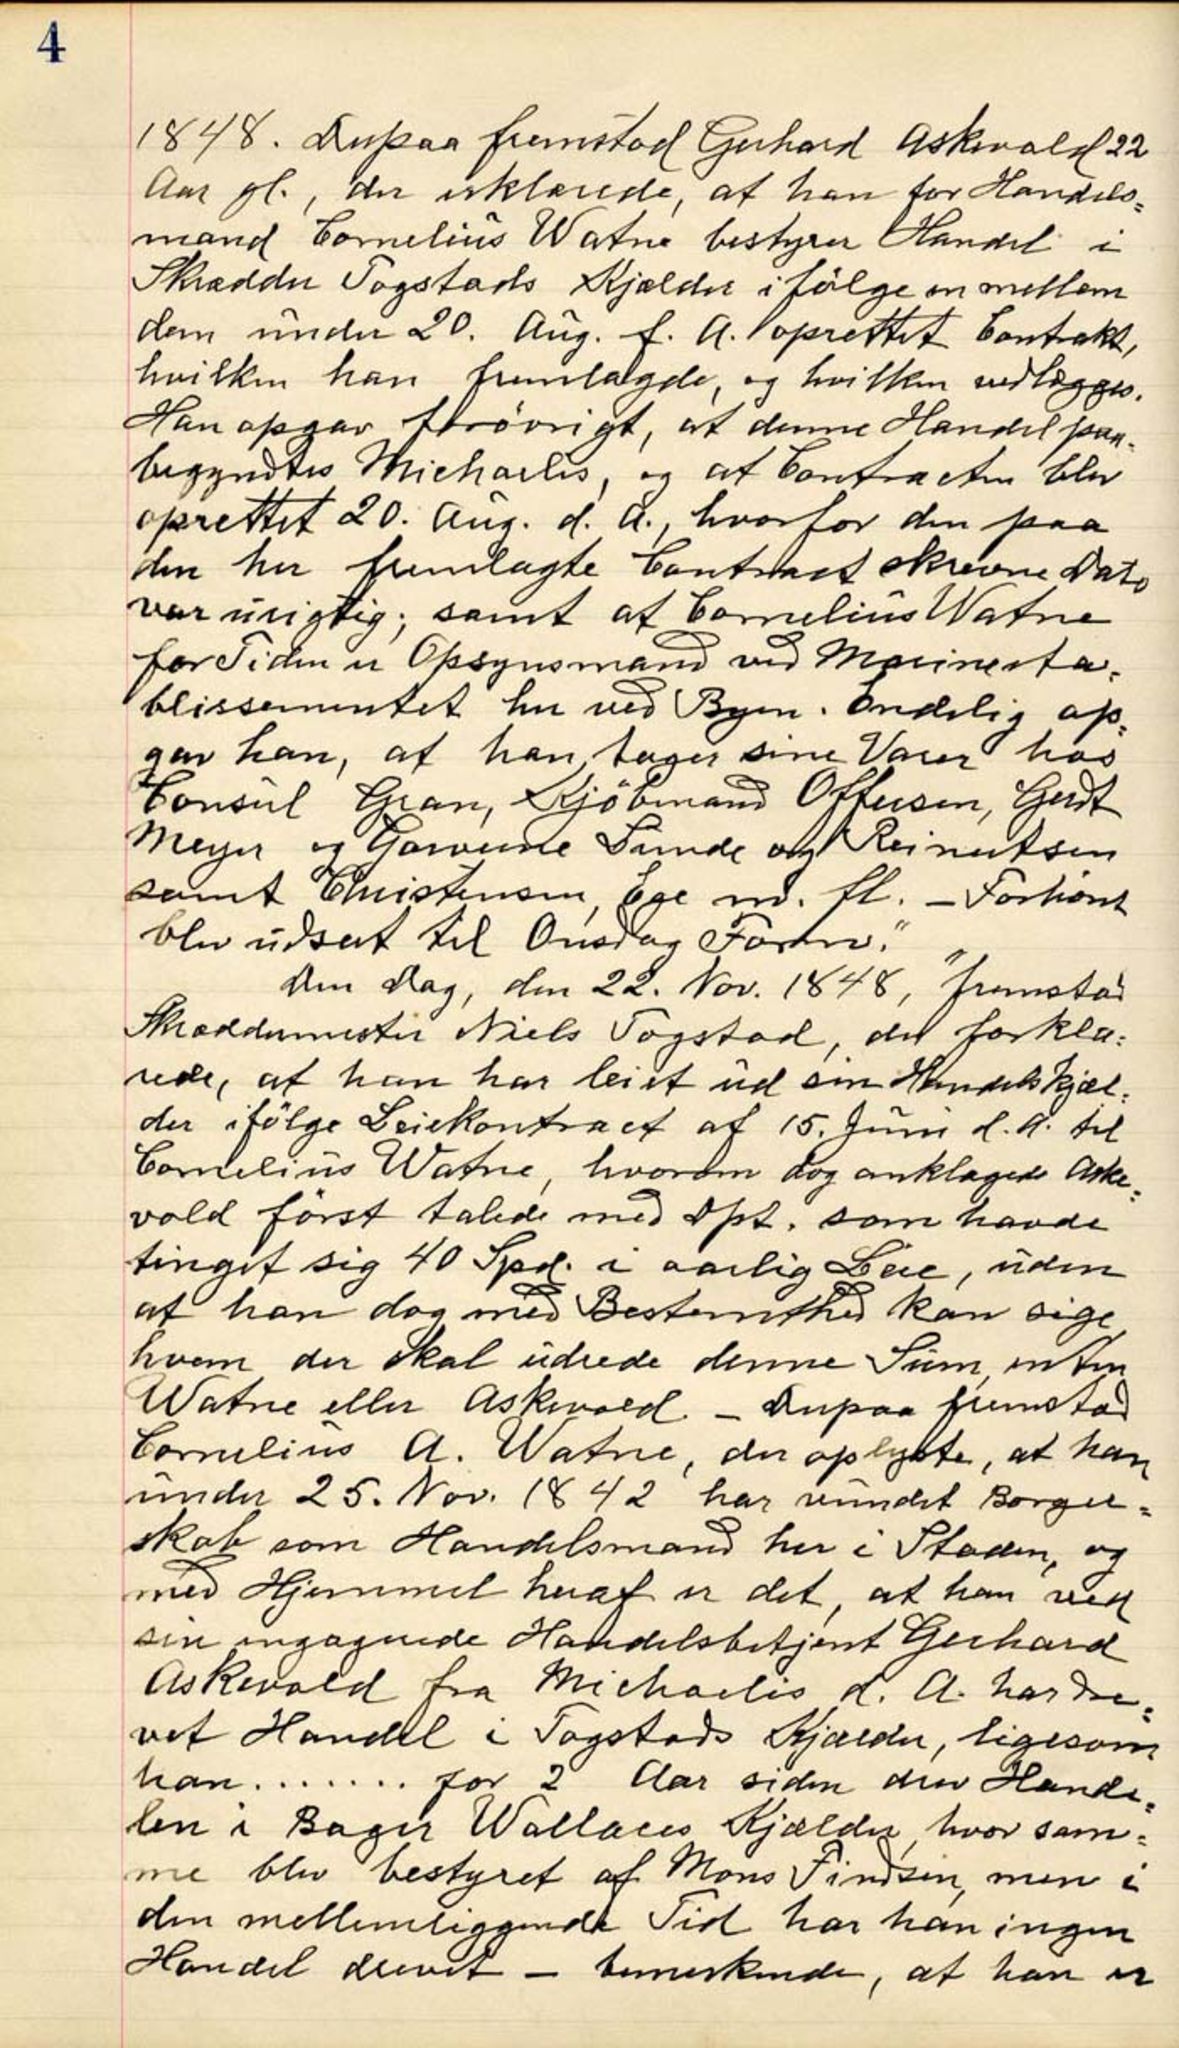 4
1848. Derpaa fremstod Gerhard Askevold 22
Aar gl., der erklærede, at han for Handels=
mand Cornelius Watne bestyrer Handel i
Skrædder Togstads Kjælder ifölge en mellem
dem under 20. Aug. f. A. oprettet Contrakt,
hvilken han fremlagde, og hvilken vedlægges.
Han opgav forövrigt, at denne Handel paa-
begyndtes Michaelis, og at Contracten blev
oprettet 20. Aug. d. A., hvorfor den paa
den her fremlagte Contract skrevne Dato
var urigtig; samt at Cornelius Watne
for Tiden er Opsynsmand ved Marineeta-
blissementet her ved Byen. Endelig op-
gav han, at han tager sine Varer hos
Consul Gran, Kjöbmand Offersen, Gerdt
Meyer og Garverne Sunde og Reinertsen
samt Christensen, Ege m. fl. – Forhöret
blev udsat til Onsdag Form."
Den Dag, den 22. Nov. 1848, "fremstod
Skræddermester Niels Togstad, der forkla=
rede, at han har leiet ud sin Handelskjæl=
der ifölge Leiekontract af 15. Juni d. A. til
Cornelius Watne, hvorom dog anklagede Aske=
vold först talede med Dpt. som havde
tinget sig 40 Spd. i aarlig Leie, uden
at han dog med Bestemthed kan sige
hvem der skal udrede denne Sum, enten
Watne eller Askevold. – Derpaa fremstod
Cornelius A. Watne, der oplyste, at han
under 25. Nov. 1842 har vundet Borger=
skab som Handelsmand her i Staden, og
med Hjemmel heraf er det, at han ved
sin engagerede Handelsbetjent Gerhard
Askevold fra Michaelis d. A. har dre=
vet Handel i Togstads Kjælder, ligesom
han....... for 2 Aar siden drev Hande=
len i Bager Wallaces Kjælder, hvor sam=
me blev bestyret af Mons Findsen, men i
den mellemliggende Tid har han ingen
Handel drevet – bemerkende, at han er